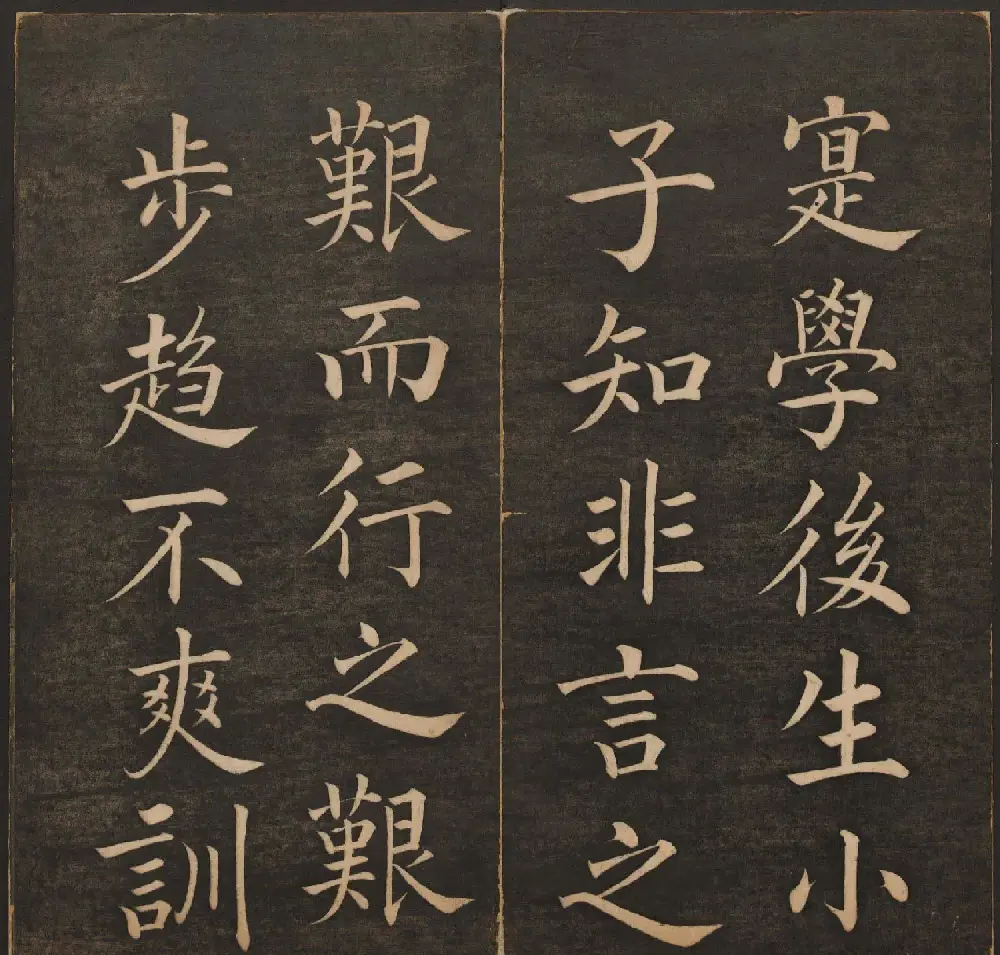 寔學後生小
子知非言之
艱而行之艱
步趋不爽訓